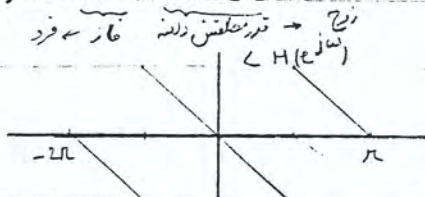 زوج → قدر مطلقش دامنه فاز → فرد
∠ H(e^jω)
-2π π